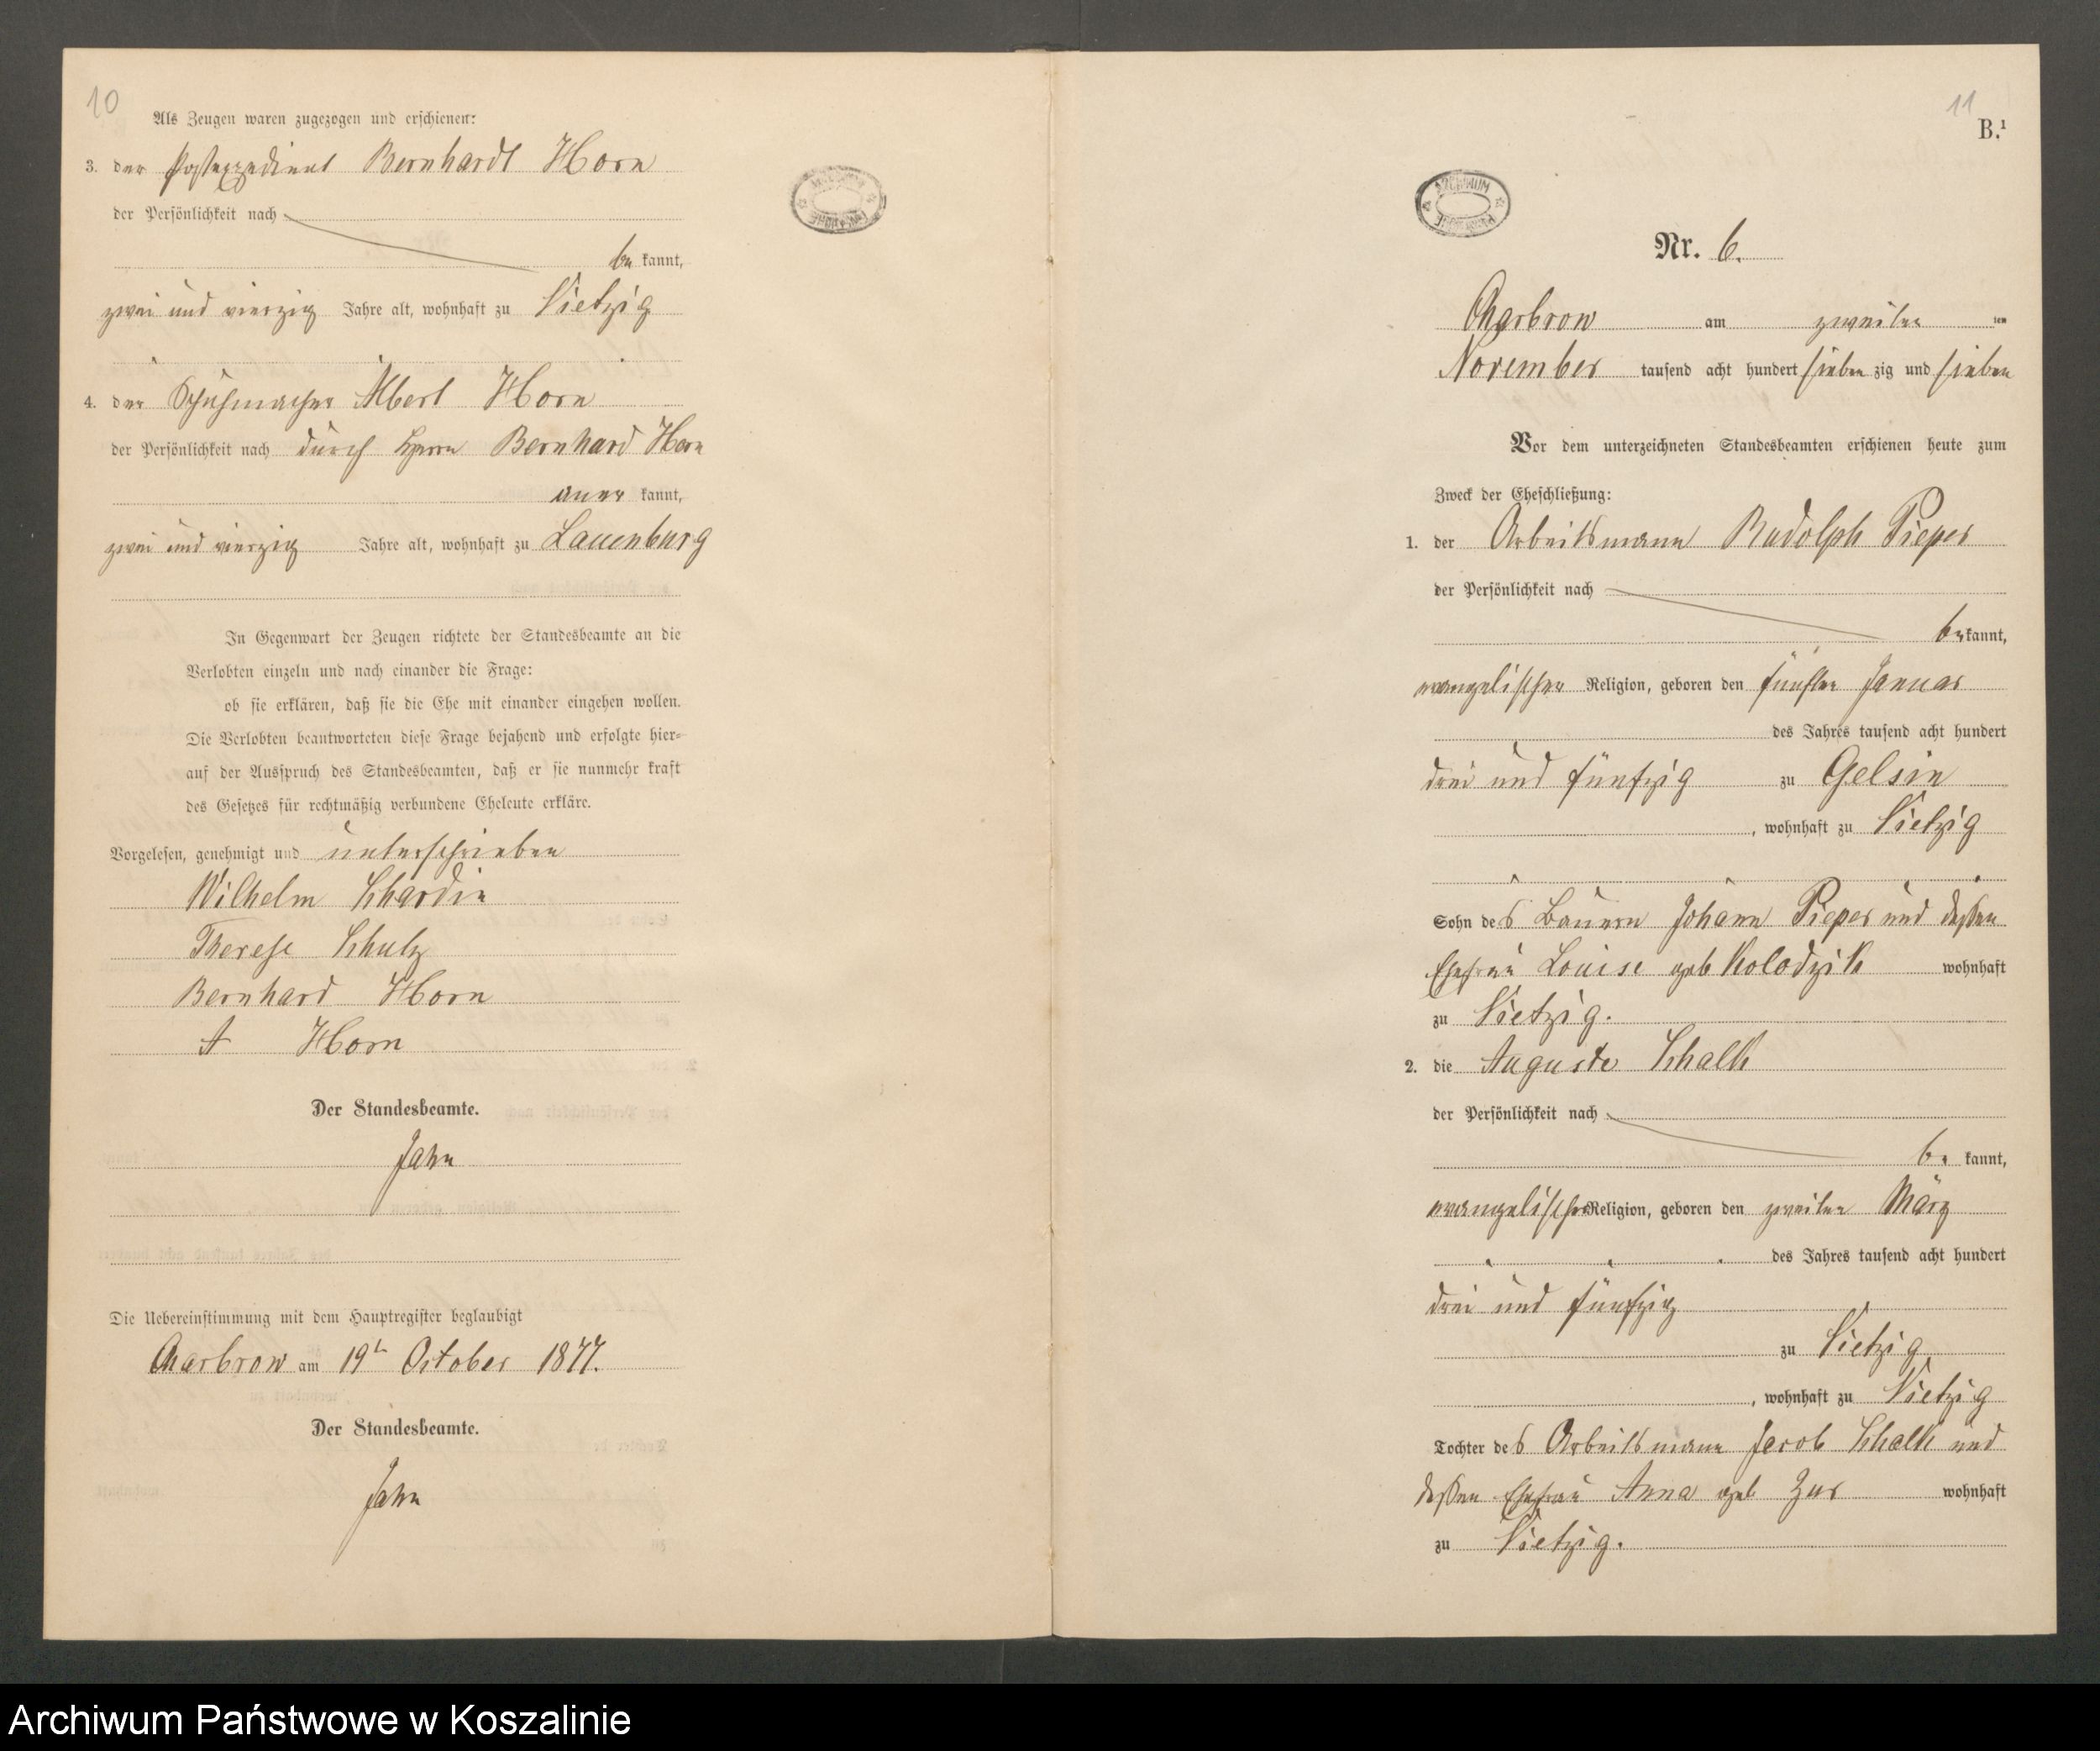 10
Als Zeugen waren zugezogen und erschienen:
3. der Postexpedient Bernhardt Horn
der Persönlichkeit nach
be kannt,
zwei und vierzig Jahre alt, wohnhaft zu Vietzig
4. der Schuhmacher Albert Horn
der Persönlichkeit nach durch Herrn Bernhard Horn
aner kannt,
zwei und vierzig Jahre alt, wohnhaft zu Lauenburg
In Gegenwart der Zeugen richtete der Standesbeamte an die
Verlobten einzeln und nach einander die Frage:
ob sie erklären, daß sie die Ehe mit einander eingehen wollen.
Die Verlobten beantworteten diese Frage bejahend und erfolgte hier-
auf der Ausspruch des Standesbeamten, daß er sie nunmehr kraft
des Gesetzes für rechtmäßig verbundene Eheleute erkläre.
Vorgelesen, genehmigt und unterschrieben
Wilhelm Schardin
Therese Schulz
Bernhard Horn
A Horn
Der Standesbeamte.
Jahn
Die Uebereinstimmung mit dem Hauptregister beglaubigt
Charbrow am 19t October 1877.
Der Standesbeamte.
Jahn
11
B.1
ARCHIWUM
Nr. 6.
Charbrow am zweiten ten
November tausend acht hundert sieben zig und sieben
Vor dem unterzeichneten Standesbeamten erschienen heute zum
Zweck der Eheschließung:
1. der Arbeitsmann Rudolph Pieper
der Persönlichkeit nach
be kannt,
evangelischer Religion, geboren den fünften Januar
des Jahres tausend acht hundert
drei und fünfzig zu Gelsin
, wohnhaft zu Vietzig
Sohn des Bauern Johann Pieper und dessen
Ehefrau Louise geb Kolodzik wohnhaft
zu Vietzig.
2. die Auguste Schalk
der Persönlichkeit nach
be kannt,
evangelischer Religion, geboren den zweiten März
des Jahres tausend acht hundert
drei und fünfzig
zu Vietzig
, wohnhaft zu Vietzig
Tochter des Arbeitsmann Jacob Schalk und
dessen Ehefrau Anna geb Zur wohnhaft
zu Vietzig.
Archiwum Państwowe w Koszalinie